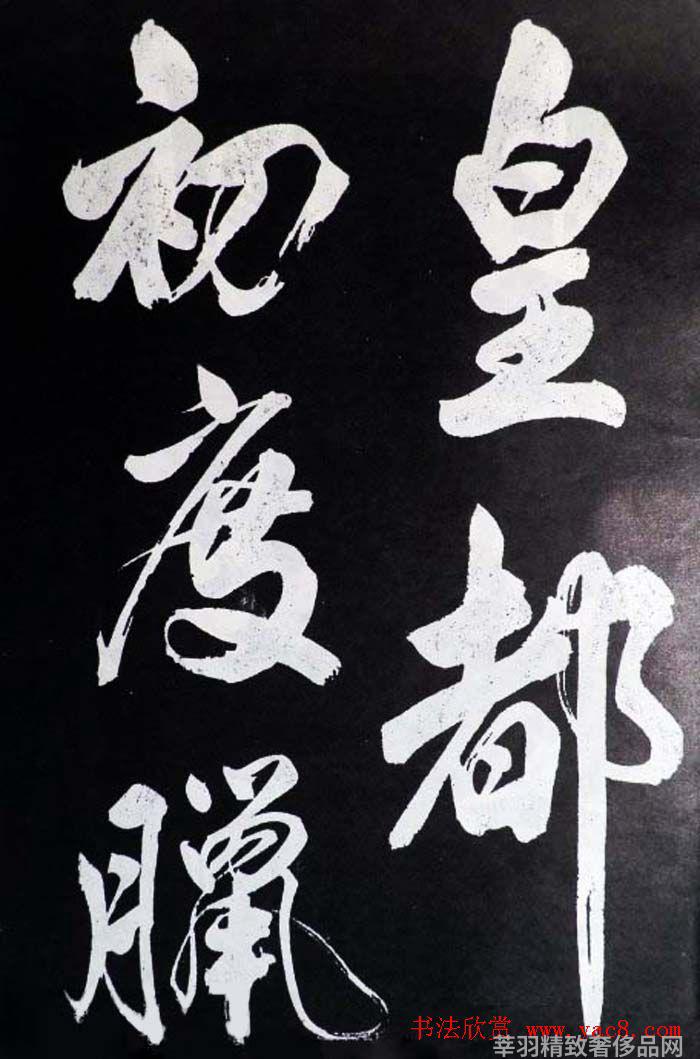 皇都
初度臘
书法欣赏 www.yac8.com
莘羽精致奢侈品网